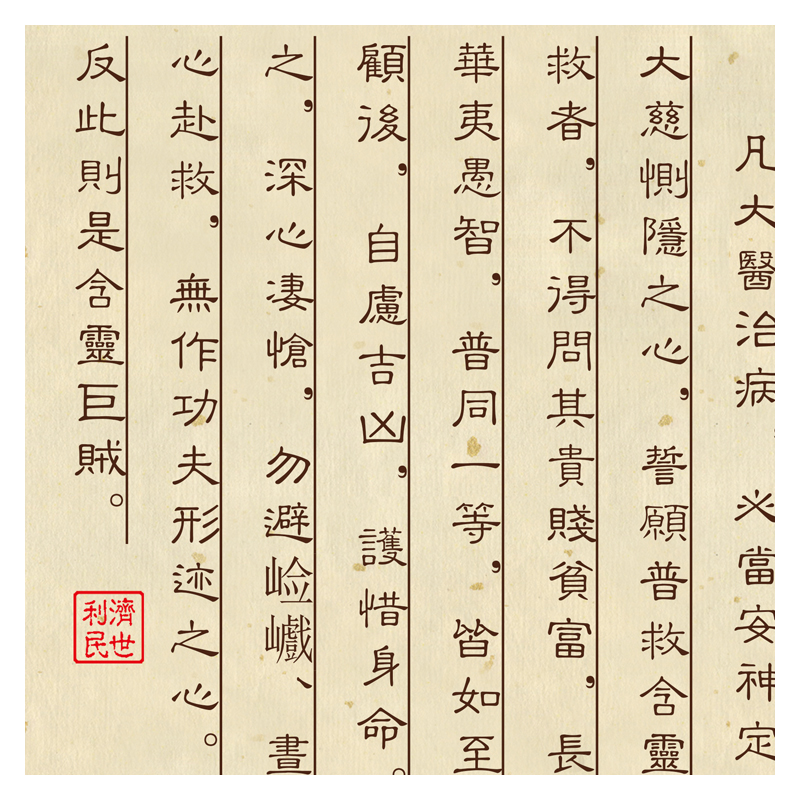 凡大醫治病，必當安神定
大慈惻隱之心，誓願普救含靈
救者，不得問其貴賤貧富，長
華夷愚智，普同一等，皆如至
顧後，自慮吉凶，護惜身命。
之，深心凄愴，勿避崄巇、晝
心赴救，無作功夫形迹之心。
反此則是含靈巨賊。
濟世
利民